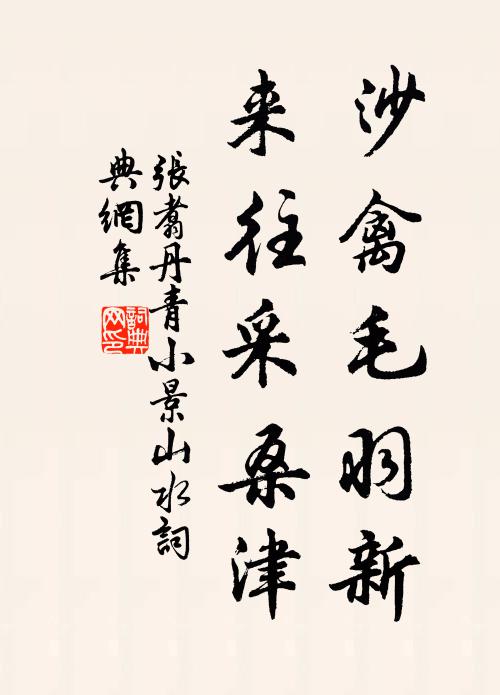 沙禽毛羽新
来往采桑津
張翥丹青小景山水詞
典網集
詞典网印